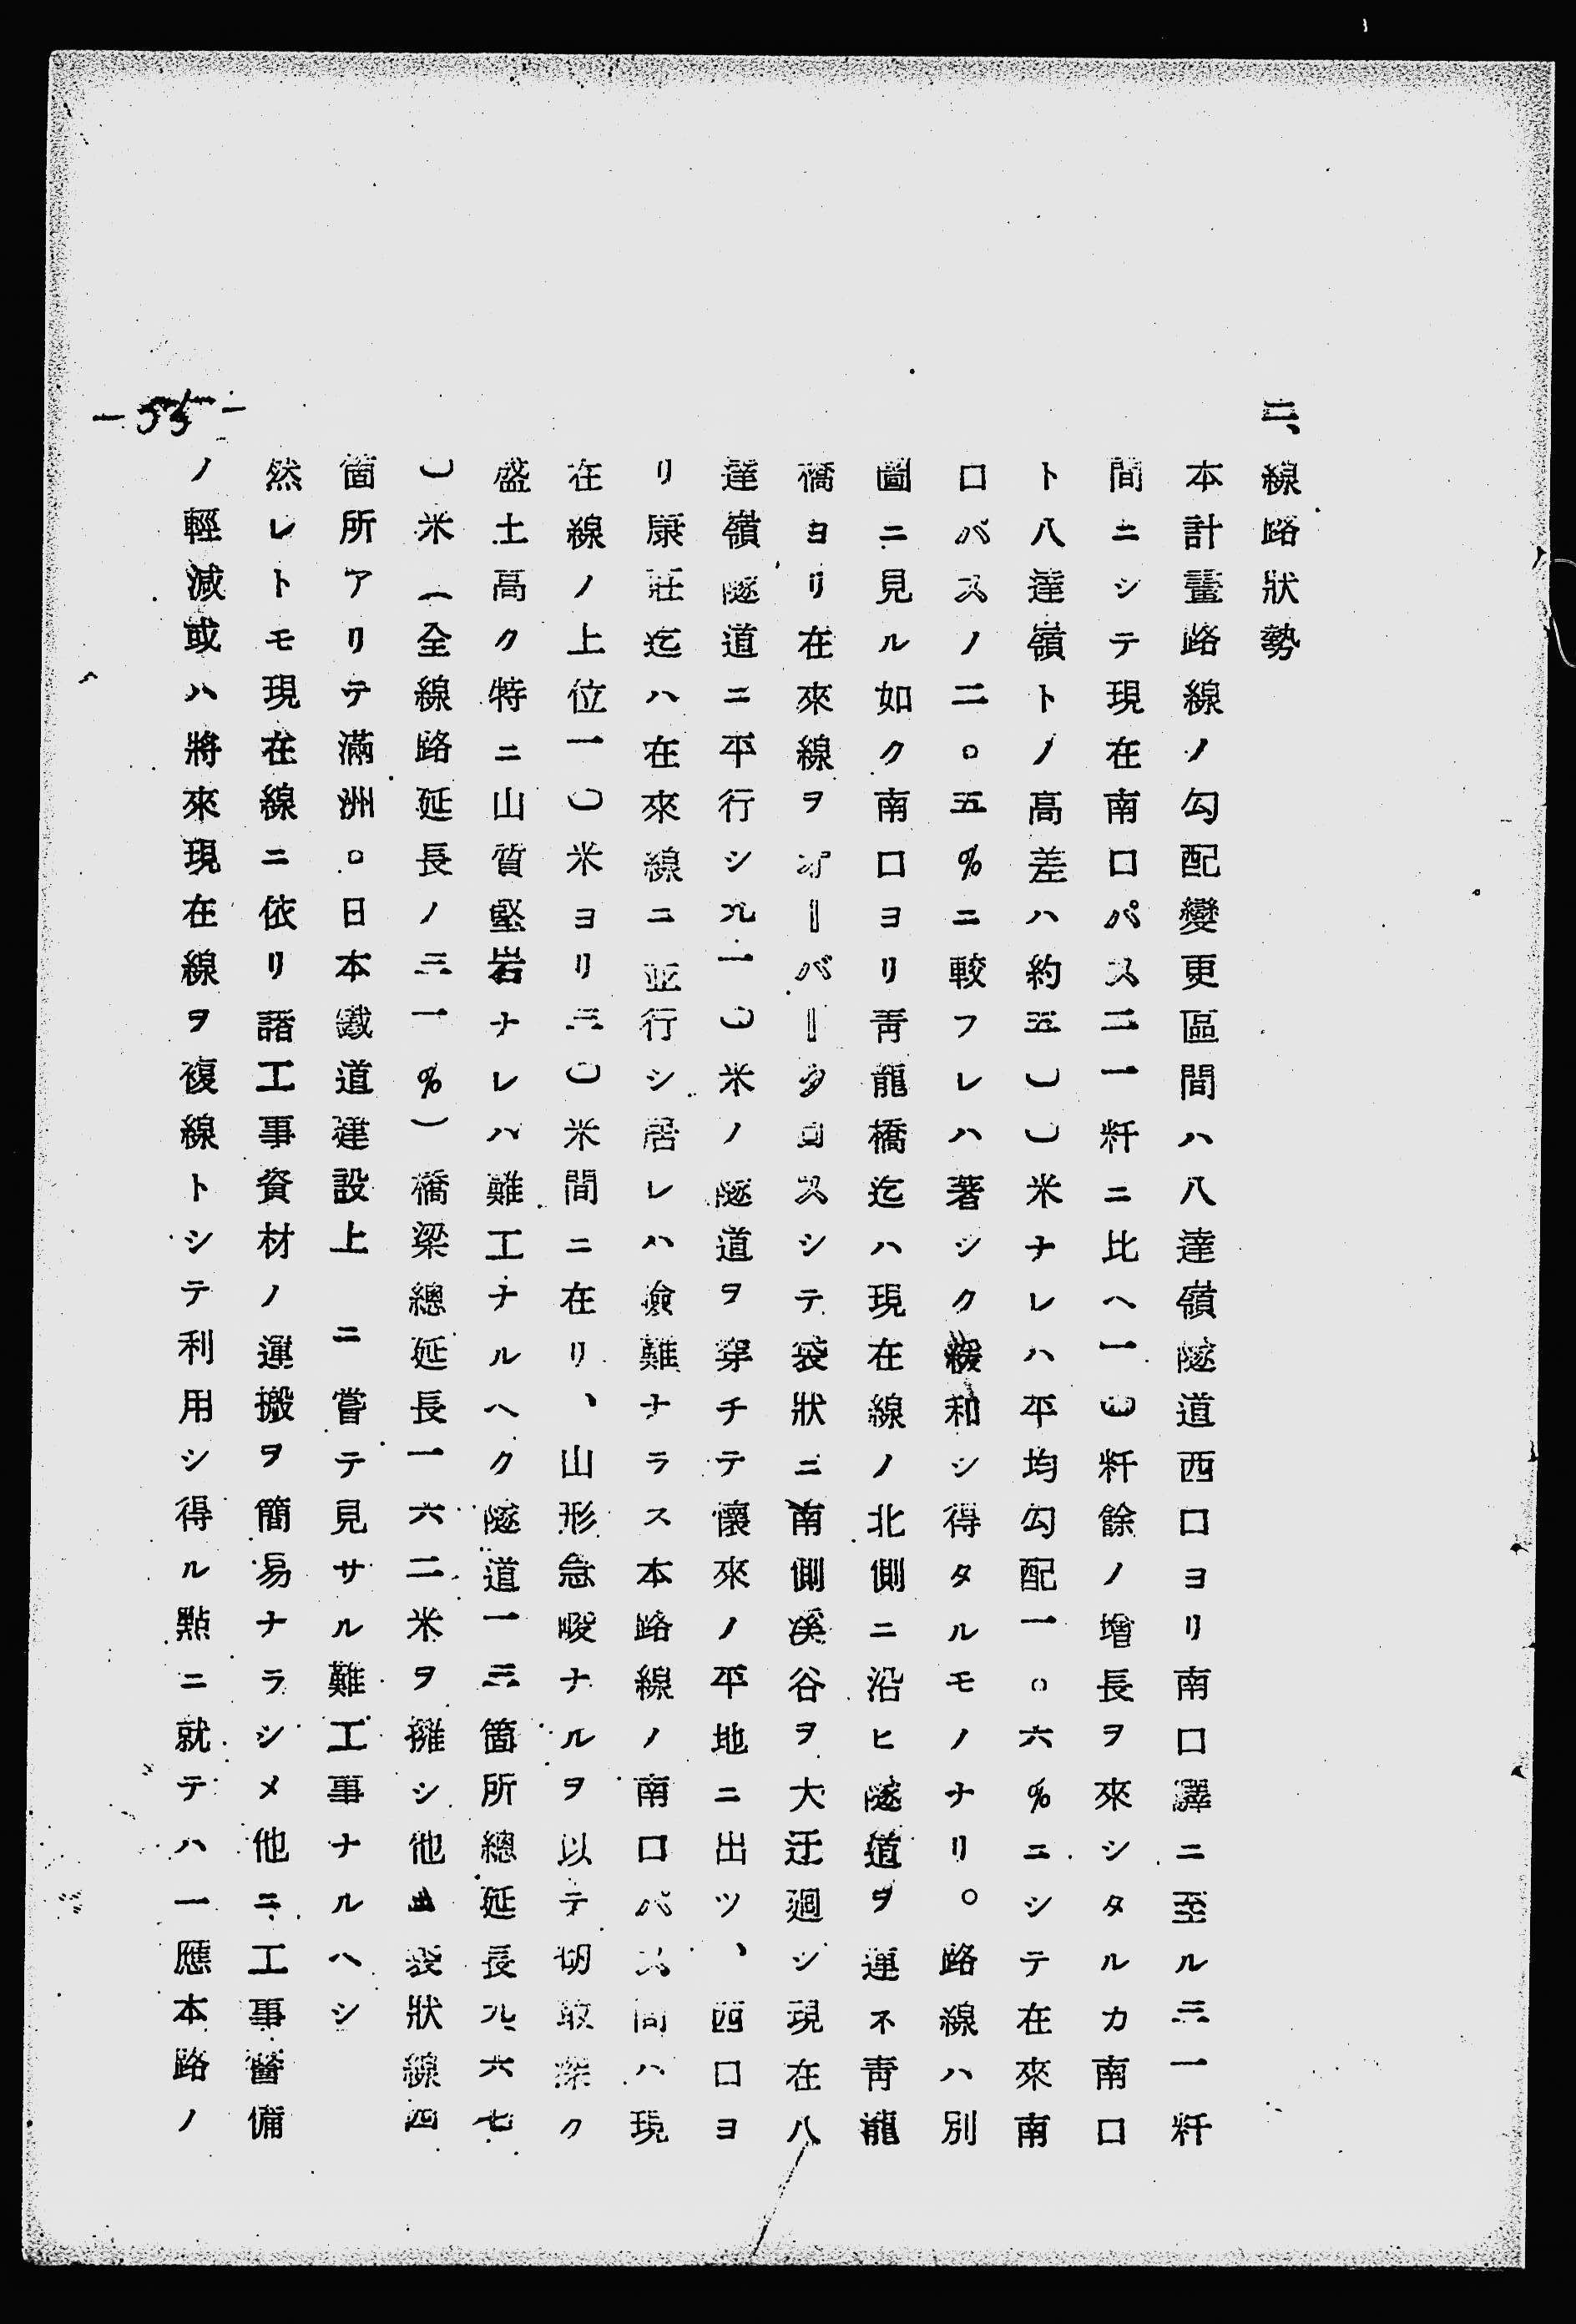 二、線路狀勢
本計畫路線ノ勾配變更區間ハ八達嶺隧道西口ヨリ南口驛ニ至ル三一粁
間ニシテ現在南口パス二一粁ニ比ヘ一〇粁餘ノ增長ヲ來シタルカ南口
ト八達嶺トノ高差ハ約五〇〇米ナレハ平均勾配一。六%ニシテ在來南
口パスノ二。五%ニ較フレハ著シク緩和シ得タルモノナリ。路線ハ別
圖ニ見ル如ク南口ヨリ靑龍橋迄ハ現在線ノ北側ニ沿ヒ隧道ヲ連ネ靑龍
橋ヨリ在來線ヲオーバータロスシテ袋狀ニ南側溪谷ヲ大迂廻シ現在八
達嶺隧道ニ平行シ九一〇米ノ隧道ヲ穿チテ懷來ノ平地ニ出ツ、西口ヨ
リ康莊迄ハ在來線ニ並行シ居レハ險難ナラス本路線ノ南口パス間ハ現
在線ノ上位一〇米ヨリ三〇米間ニ在リ、山形急峻ナルヲ以テ切取深ク
盛土高ク特ニ山質堅岩ナレバ難工ナルヘク隧道一三箇所總延長九、六七
〇米(全線路延長ノ三一%)橋梁總延長一六二米ヲ擁シ他ニ袋狀線四
箇所アリテ滿洲。日本鐵道建設上ニ嘗テ見サル難工事ナルヘシ
然レトモ現在線ニ依リ諸工事資材ノ運搬ヲ簡易ナラシメ他ニ工事警備
ノ輕減或ハ將來現在線ヲ複線トシテ利用シ得ル點ニ就テハ一應本路ノ
-55-